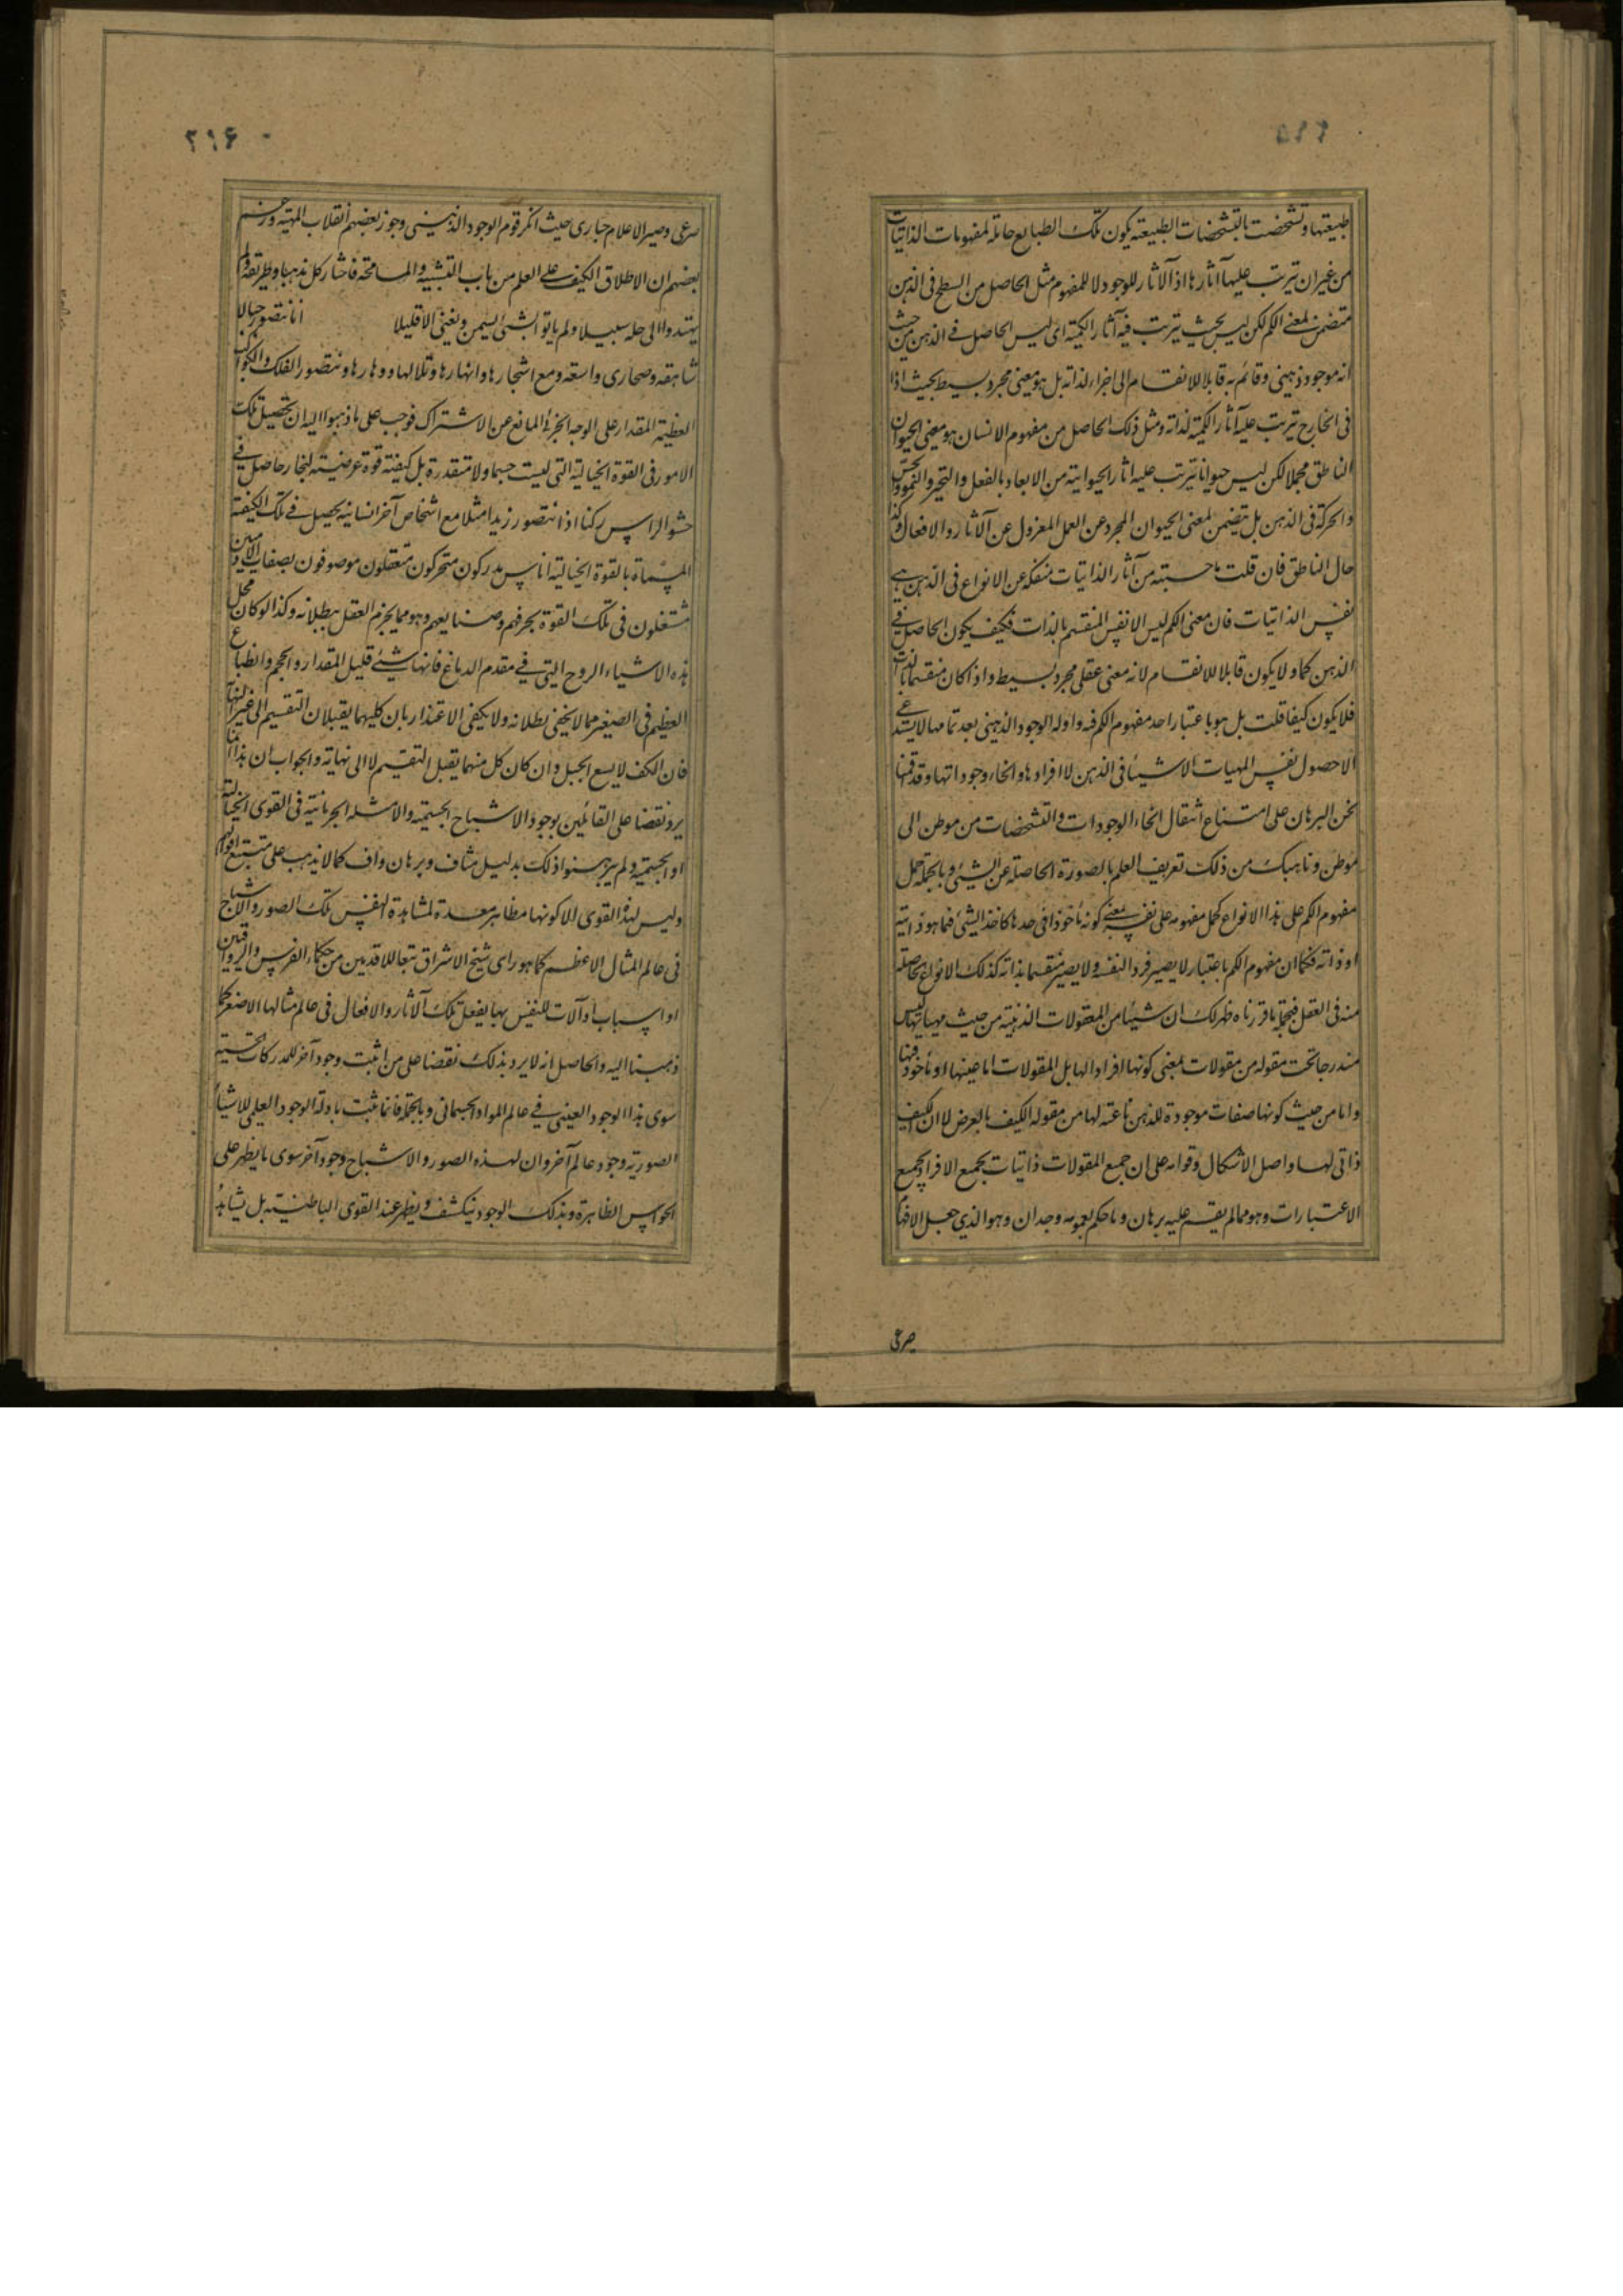 ۲۹۵
طبیعتها وتشخصت بالتشخصات الطبیعته یکون تلک الطبایع حاملة لمفهومات الذاتیات
من غیر ان یترتب علیها آثارها اذ الآثار للوجود لا للمفهوم مثل الحاصل من السطح فی الذهن
متضمن لمعنی الکم لکن لیس بحیث یترتب فیه آثار الکمیته ای لیس الحاصل فی الذهن من حیث
انه موجود ذهنی وقائم به قابلا للانقسام الی اجزاء لذاته بل هو معنی مجرد بسیط بحیث اذا
فی الخارج یترتب علیه آثار الکمیة لذاته ومثل ذلک الحاصل من مفهوم الانسان هو معنی الحیوان
الناطق مجملا لکن لیس حیوانا یترتب علیه آثار الحیوانیته من الابعاد بالفعل والتحیز والنمو والحس
والحرکة فی الذهن بل یتضمن لمعنی الحیوان المجرد عن العمل المعزول عن الآثار والافعال وکذا
حال الناطق فان قلت ما حسبته من آثار الذاتیات منفکة عن الانواع فی الذهن هی
نفس الذاتیات فان معنی الکم لیس الا نفس المنقسم بالذات فکیف یکون الحاصل فی
الذهن کما ولا یکون قابلا للانقسام لانه معنی عقلی مجرد بسیط واذا کان منقسما بالذات
فلا یکون کیفا قلت بل هو باعتبار احد مفهوم الکم فیه وادلة الوجود الذهنی بعد تمامها لا یستدعی
الا حصول نفس المهیات الاشیاء فی الذهن لا افرادها وانحاء وجوداتها وقد اقمنا
نحن البرهان علی امتناع انتقال انحاء الوجودات والتشخصات من موطن الی
موطن وناهیک من ذلک تعریف العلم بالصورة الحاصلة عن الشیئ وبالجملة حمل
مفهوم الکم علی هذا الانواع کحمل مفهومه علی نفسه بمعنی کونه ماخوذا فی حدها کاخذ الشیئ فیما هو ذاتیته
او ذاته فکما ان مفهوم الکم باعتبار لا یصیر فرد النفسه ولا یصیر منقسما بذاته کذلک الانواع الحاصلة
منه فی العقل فبجمله ما قررناه ظهر لک ان شیئا من المعقولات الذهنیة من حیث مهیاتها لیس
مندرجا تحت مقوله من مقولات بمعنی کونها افرادا لها بل المقولات اما عینها او ماخوذ فیها
واما من حیث کونها صفات موجودة للذهن ناعته لها من مقوله الکیف بالعرض لا ان الکیف
ذاتی لها واصل الاشکال وقوامه علی ان جمیع المقولات ذاتیات بجمیع الافراد بجمیع
الاعتبارات وهو مما لم یقسم علیه برهان وما حکم بعمومه وجدان وهو الذی جعل الافهام
صرعی
۲۹۶
صرعی وصیر الاعلام حیاری حیث انکر قوم الوجود الذهنی وجوز بعضهم انقلاب المهیته وزعم
بعضهم ان الاطلاق الکیف علی العلم من باب التشبیه والمسامحة فاختار کل مذهبا وطریقة ولم
یهتدوا الی حله سبیلا ولم یاتوا بشئ یسمن ویغنی الا قلیلا انا نتصور جبالا
شاهقة وصحاری واسعة ومع اشجارها وانهارها وتلالها ووهادها ونتصور الفلک والکواکب
العظیمة المقدار علی الوجه الجزئ المانع عن الاشتراک فوجب علی ما ذهبوا الیه ان تحصیل تلک
الامور فی القوة الخیالیة التی لیست جسما ولا متقدرة بل کیفیته قوة عرضیته لبخار حاصل فی
حشو الراس رکنا اذا نتصور زیدا مثلا مع اشخاص آخر انسانیة یحصل فی تلک الکیفیته
المسماة بالقوة الخیالیة اناس مدرکون متحرکون متعقلون موصوفون بصفات الآدمیین
مشتغلون فی تلک القوة بحرفهم وصنایعهم وهو مما یجزم العقل ببطلانه وکذا لو کان محل
هذه الاشیاء الروح التی فی مقدم الدماغ فانها شیئ قلیل المقدار والحجم وانطباع
العظیم فی الصغیر مما لا یخفی بطلانه ولا یکفی الاعتذار بان کلیهما یقبلان التقسیم الی غیر النهایة
فان الکف لا یسع الجبل وان کان کل منهما یقبل التقسیم لا الی نهایة والجواب ان هذا انما
یرد نقضا علی القائلین بوجود الاشباح الجسمیته والامثلة الجرمانیته فی القوی الخیالیة
او الجسمیة ولم یبرهنوا ذلک بدلیل شاف وبرهان واف کما لا یذهب علی متتبع اقوالهم
ولیس لهذا القوی الا کونها مظاهر معدة لمشاهدة النفس تلک الصور والاشباح
فی عالم المثال الاعظم کما هو رای شیخ الاشراق تبعا للاقدمین من حکماء الفرس والرواقیین
او اسباب او آلات للنفس بها یفعل تلک الآثار والافعال فی عالم مثالها الاصغر کما
ذهبنا الیه والحاصل انه لا یرد بذلک نقضا علی من اثبت وجود آخر للمدرکات الحسیته
سوی هذا الوجود العینی فی عالم المواد الجسمانی وبالجملة فانما یثبت بادلة الوجود العلمی للاشیاء
الصوریة وجود عالم آخر وان لهذه الصور والاشباح وجود آخر سوی ما یظهر علی
الحواس الظاهرة وبذلک الوجود ینکشف ویظهر عند القوی الباطنیته بل یشاهد